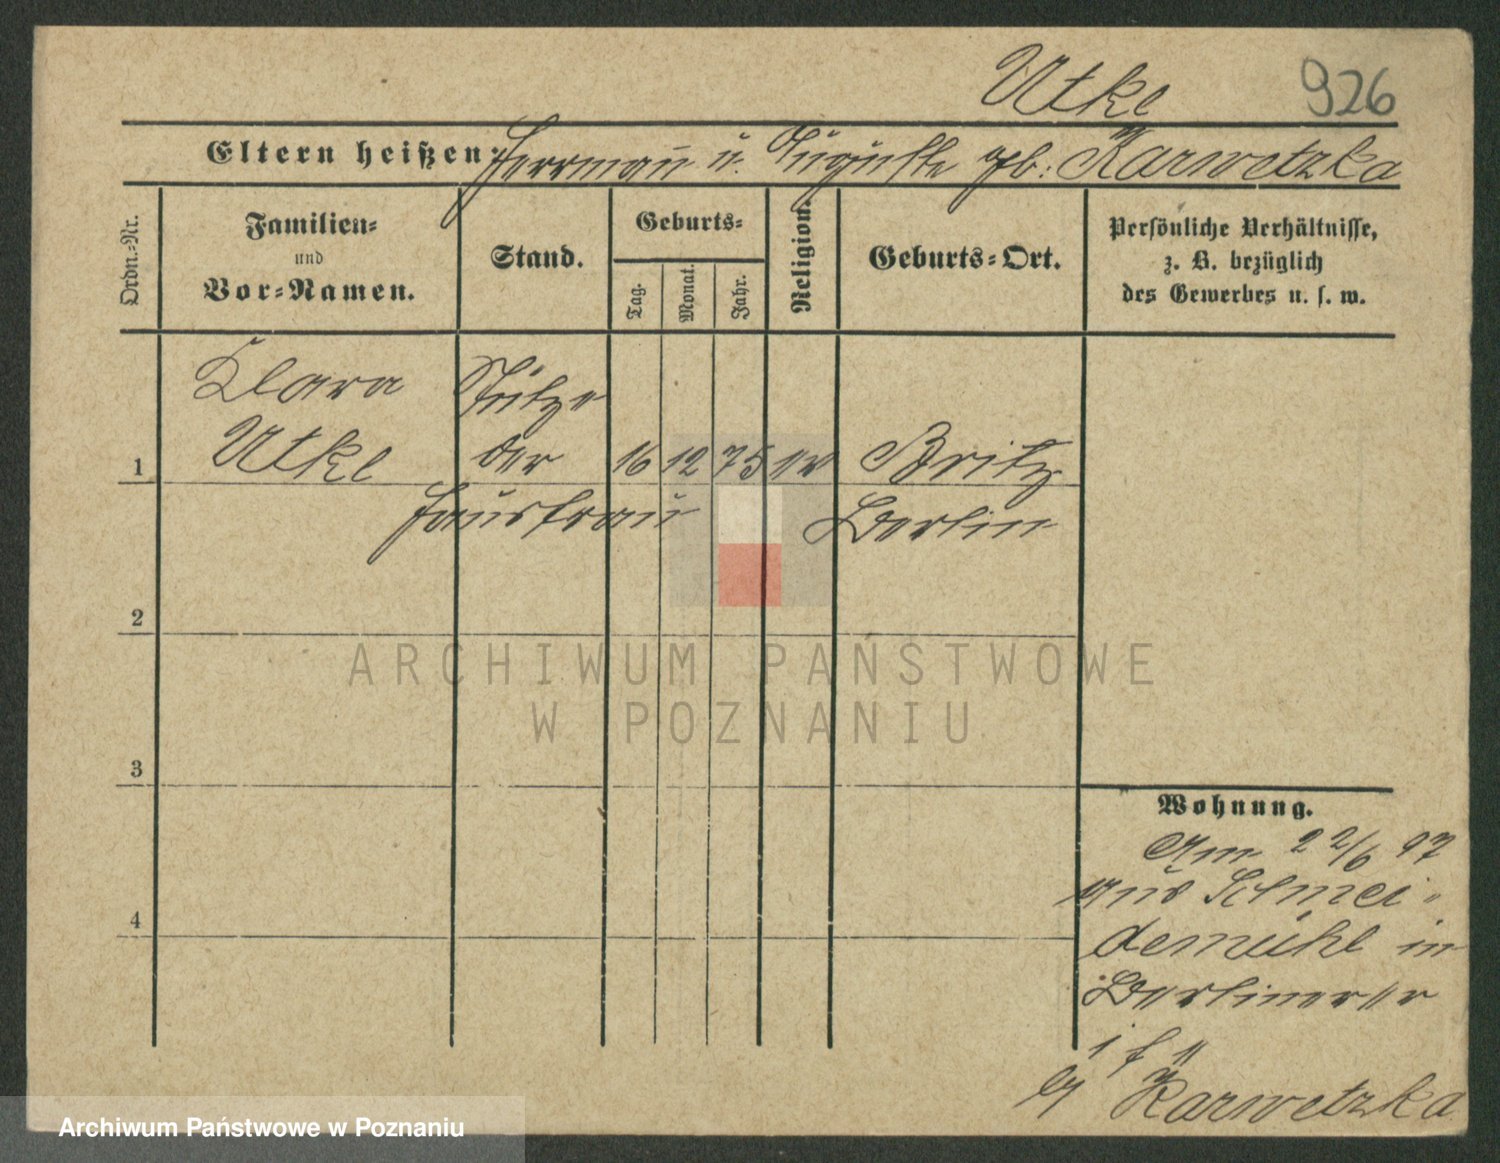 Utke 926
Eltern heißen: Herrman u. Auguste geb: Karwetzka
Ordn.-Nr.
Familien-
und
Vor-Namen.
Stand.
Geburts-
Tag. Monat. Jahr.
Religion.
Geburts-Ort.
Persönliche Verhältnisse,
z. B. bezüglich
des Gewerbes u. s. w.
Klara Stütze
1 Utke der 16 12 75 ev Britz
Hausfrau Berlin
2
3
4
Wohnung.
Am 22/6 97
aus Schnei-
demühl in
Berliner
Karwetzka
ARCHIWUM PAŃSTWOWE
W POZNANIU
Archiwum Państwowe w Poznaniu